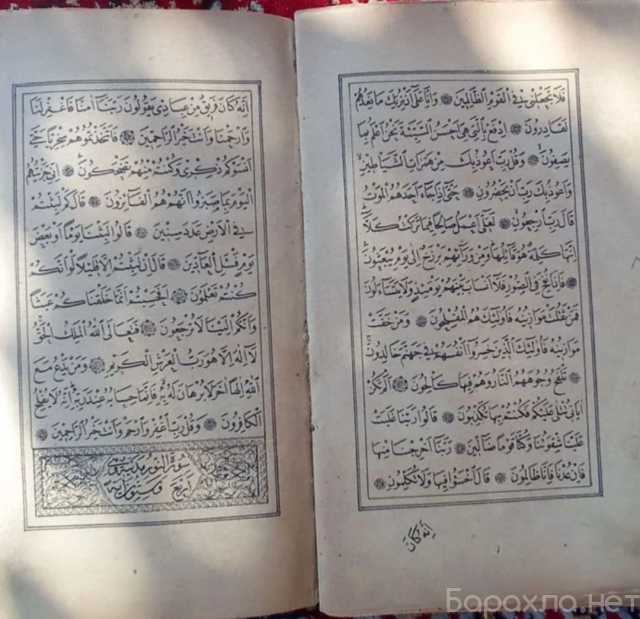 فَلَا تَجْعَلْنِي فِي الْقَوْمِ الظَّالِمِينَ وَإِنَّا عَلَى أَنْ نُرِيَكَ مَا نَعِدُهُمْ
لَقَادِرُونَ اِدْفَعْ بِالَّتِي هِيَ أَحْسَنُ السَّيِّئَةَ نَحْنُ أَعْلَمُ بِمَا
يَصِفُونَ وَقُلْ رَبِّ أَعُوذُ بِكَ مِنْ هَمَزَاتِ الشَّيَاطِينِ
وَأَعُوذُ بِكَ رَبِّ أَنْ يَحْضُرُونِ حَتَّى إِذَا جَاءَ أَحَدَهُمُ الْمَوْتُ
قَالَ رَبِّ ارْجِعُونِ لَعَلِّي أَعْمَلُ صَالِحًا فِيمَا تَرَكْتُ كَلَّا
إِنَّهَا كَلِمَةٌ هُوَ قَائِلُهَا وَمِنْ وَرَائِهِمْ بَرْزَخٌ إِلَى يَوْمِ يُبْعَثُونَ
فَإِذَا نُفِخَ فِي الصُّورِ فَلَا أَنْسَابَ بَيْنَهُمْ يَوْمَئِذٍ وَلَا يَتَسَاءَلُونَ
فَمَنْ ثَقُلَتْ مَوَازِينُهُ فَأُولَئِكَ هُمُ الْمُفْلِحُونَ وَمَنْ خَفَّتْ
مَوَازِينُهُ فَأُولَئِكَ الَّذِينَ خَسِرُوا أَنْفُسَهُمْ فِي جَهَنَّمَ خَالِدُونَ
تَلْفَحُ وُجُوهَهُمُ النَّارُ وَهُمْ فِيهَا كَالِحُونَ أَلَمْ تَكُنْ
آيَاتِي تُتْلَى عَلَيْكُمْ فَكُنْتُمْ بِهَا تُكَذِّبُونَ قَالُوا رَبَّنَا غَلَبَتْ
عَلَيْنَا شِقْوَتُنَا وَكُنَّا قَوْمًا ضَالِّينَ رَبَّنَا أَخْرِجْنَا مِنْهَا
فَإِنْ عُدْنَا فَإِنَّا ظَالِمُونَ قَالَ اخْسَؤُا فِيهَا وَلَا تُكَلِّمُونِ
إِنَّهُ كَانَ
إِنَّهُ كَانَ فَرِيقٌ مِنْ عِبَادِي يَقُولُونَ رَبَّنَا آمَنَّا فَاغْفِرْ لَنَا
وَارْحَمْنَا وَأَنْتَ خَيْرُ الرَّاحِمِينَ فَاتَّخَذْتُمُوهُمْ سِخْرِيًّا حَتَّى
أَنْسَوْكُمْ ذِكْرِي وَكُنْتُمْ مِنْهُمْ تَضْحَكُونَ إِنِّي جَزَيْتُهُمُ
الْيَوْمَ بِمَا صَبَرُوا أَنَّهُمْ هُمُ الْفَائِزُونَ قَالَ كَمْ لَبِثْتُمْ
فِي الْأَرْضِ عَدَدَ سِنِينَ قَالُوا لَبِثْنَا يَوْمًا أَوْ بَعْضَ
يَوْمٍ فَسْئَلِ الْعَادِّينَ قَالَ إِنْ لَبِثْتُمْ إِلَّا قَلِيلًا لَوْ أَنَّكُمْ
كُنْتُمْ تَعْلَمُونَ أَفَحَسِبْتُمْ أَنَّمَا خَلَقْنَاكُمْ عَبَثًا
وَأَنَّكُمْ إِلَيْنَا لَا تُرْجَعُونَ فَتَعَالَى اللَّهُ الْمَلِكُ الْحَقُّ
لَا إِلَهَ إِلَّا هُوَ رَبُّ الْعَرْشِ الْكَرِيمِ وَمَنْ يَدْعُ مَعَ
اللَّهِ إِلَهًا آخَرَ لَا بُرْهَانَ لَهُ بِهِ فَإِنَّمَا حِسَابُهُ عِنْدَ رَبِّهِ إِنَّهُ لَا يُفْلِحُ
الْكَافِرُونَ وَقُلْ رَبِّ اغْفِرْ وَارْحَمْ وَأَنْتَ خَيْرُ الرَّاحِمِينَ
سورة النور مدنية
اربع وستون آية
Барахла.нет